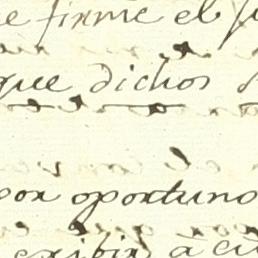 e firme el
que dichos
por oportuno
exibir á cu